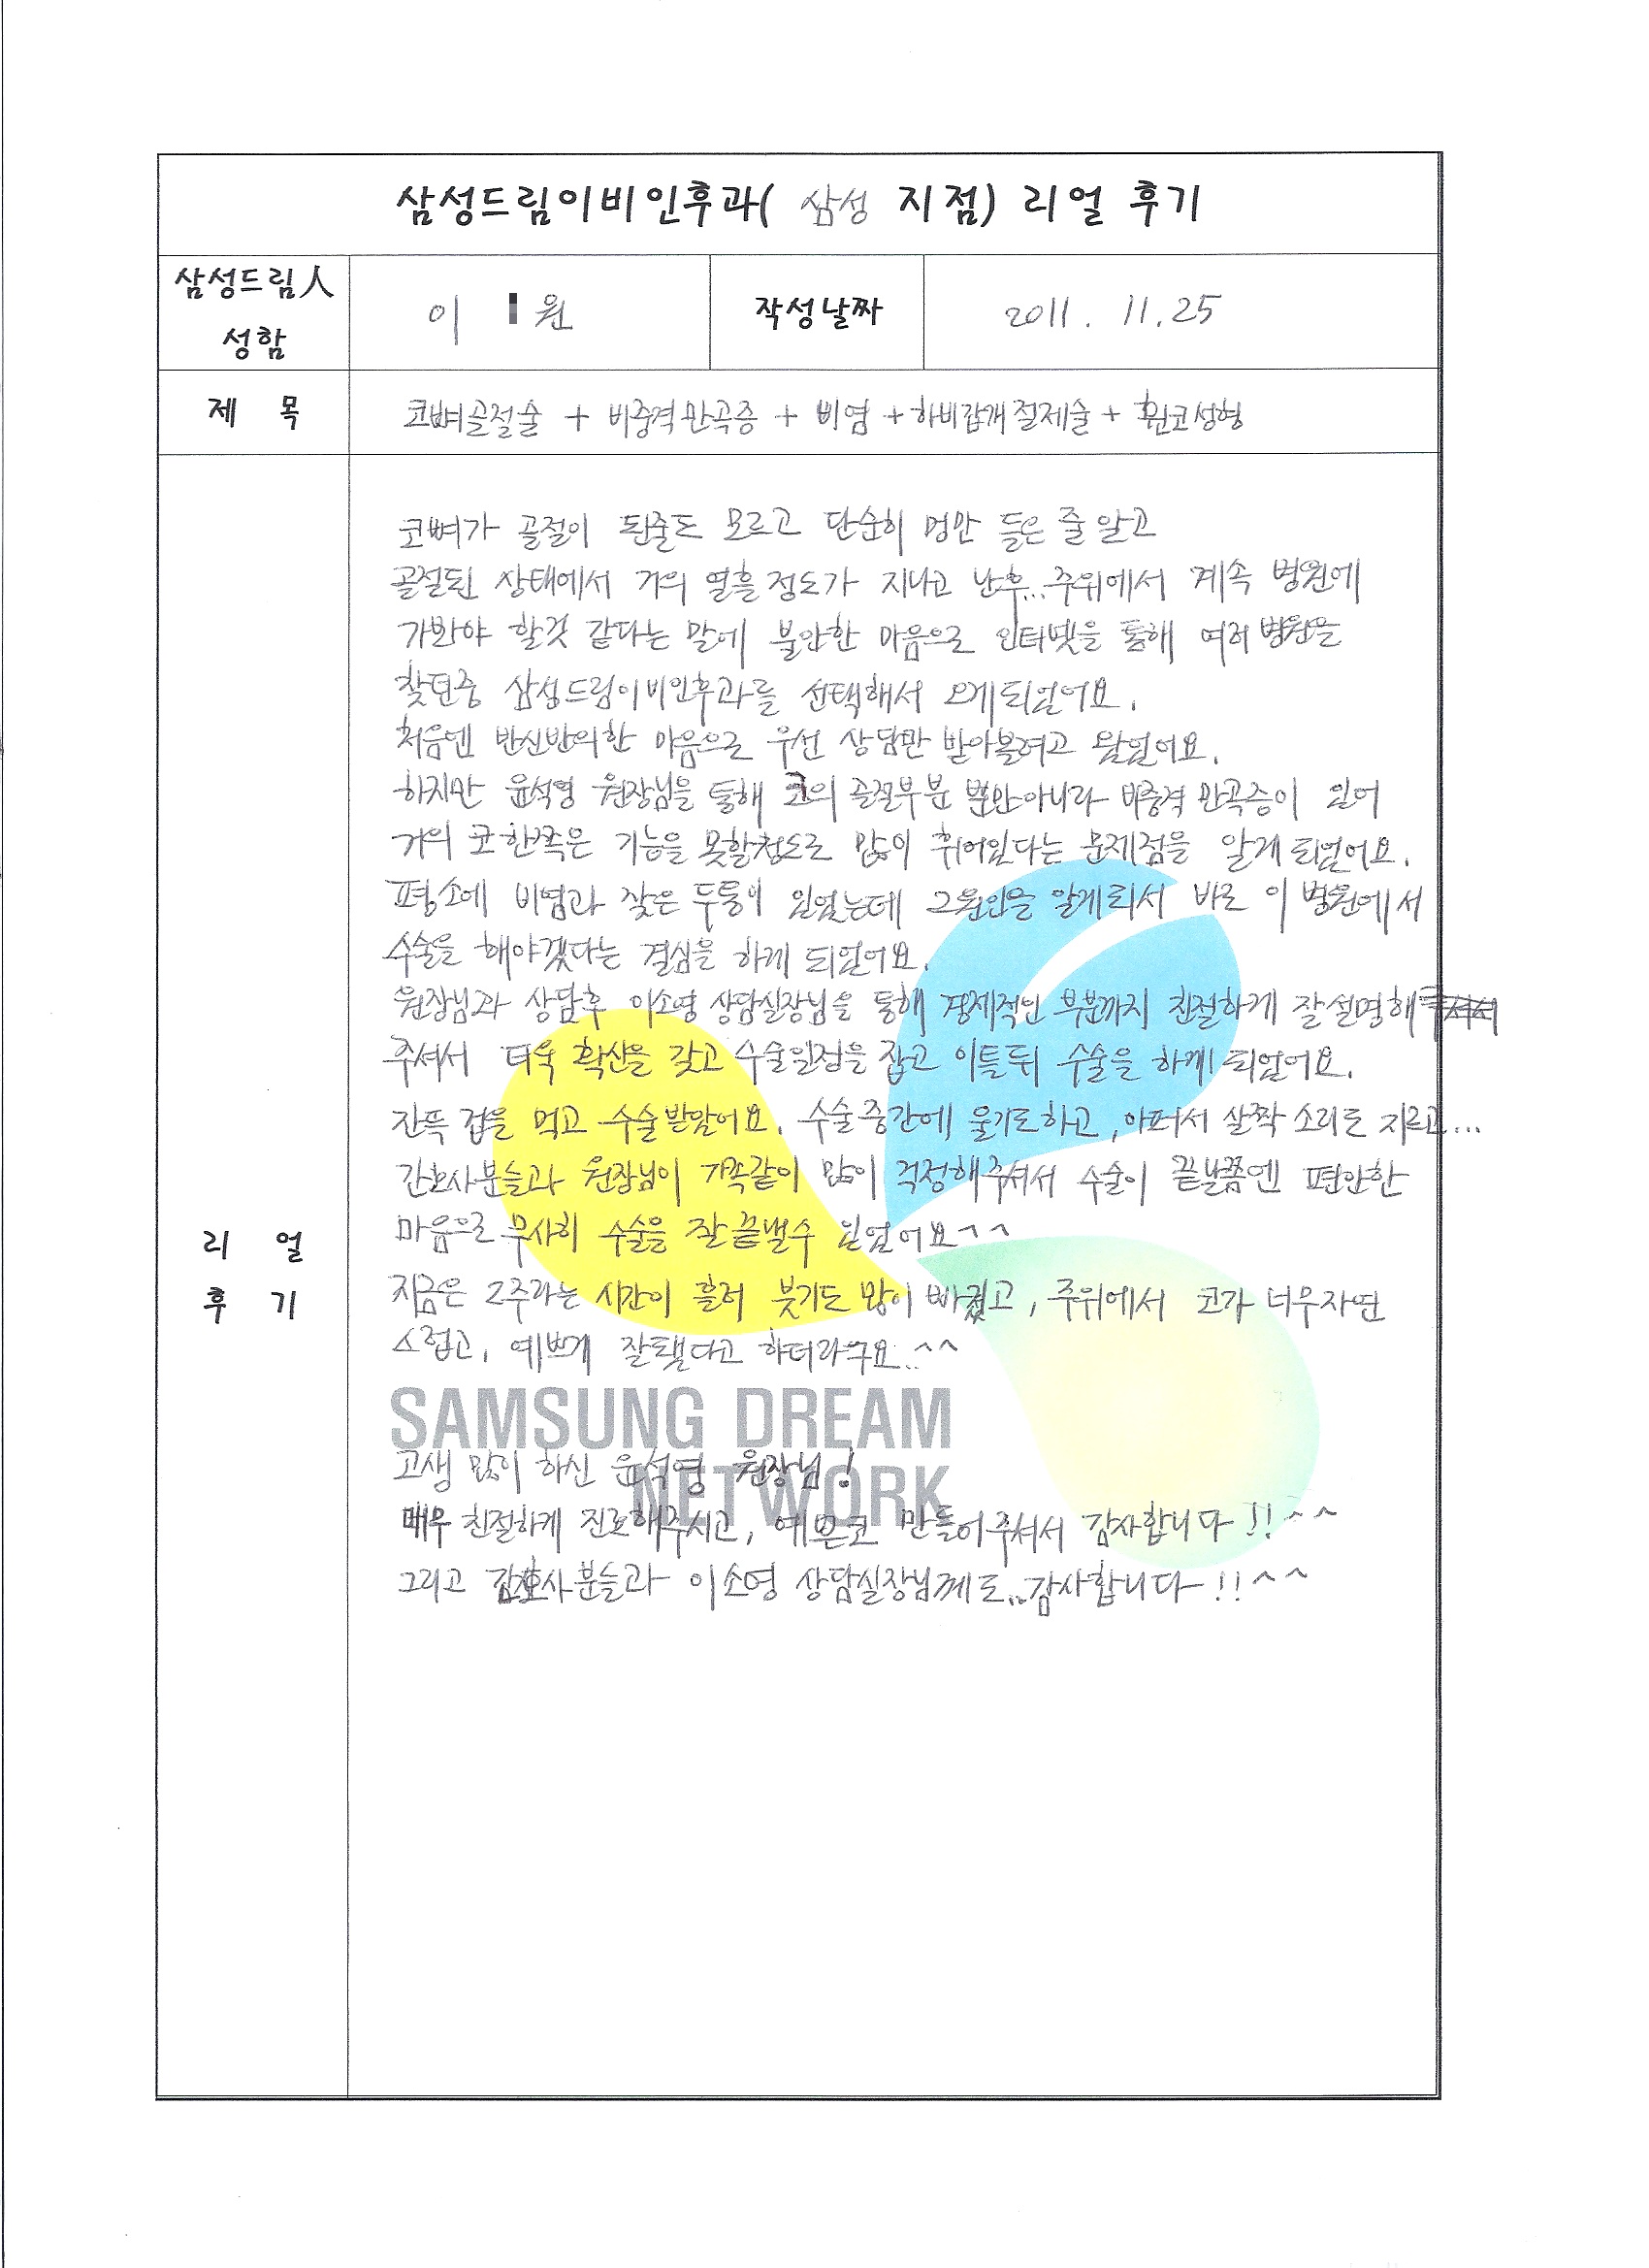 삼성드림이비인후과( 삼성 지점) 리얼 후기
삼성드림人 성함
이 원
작성날짜
2011. 11. 25
제 목
코뼈골절술 + 비중격만곡증 + 비염 + 하비갑개절제술 + 휜코성형
리 얼 후 기
코뼈가 골절이 된줄도 모르고 단순히 멍만 들은 줄 알고
골절된 상태에서 거의 열흘 정도가 지나고 난후... 주위에서 계속 병원에
가봐야 할것 같다는 말에 불안한 마음으로 인터넷을 통해 여러 병원을
찾던중 삼성드림이비인후과를 선택해서 오게되었어요.
처음엔 반신반의한 마음으로 우선 상담만 받아볼려고 왔었어요.
하지만 윤석영 원장님을 통해 코의 골절부분 뿐만아니라 비중격 만곡증이 있어
거의 코 한쪽은 기능을 못할정도로 많이 휘어있다는 문제점을 알게 되었어요.
평소에 비염과 잦은 두통이 있었는데 그원인을 알게되서 바로 이 병원에서
수술을 해야겠다는 결심을 하게 되었어요.
원장님과 상담후 이소영 상담실장님을 통해 경제적인 부분까지 친절하게 잘설명해
주셔서 더욱 확신을 갖고 수술일정을 잡고 이틀뒤 수술을 하게 되었어요.
잔뜩 겁을 먹고 수술받았어요. 수술중간에 울기도하고, 아퍼서 살짝 소리도 지르고...
간호사분들과 원장님이 가족같이 많이 걱정해주셔서 수술이 끝날쯤엔 편안한
마음으로 무사히 수술을 잘 끝낼수 있었어요^^
지금은 2주라는 시간이 흘러 붓기도 많이 빠졌고, 주위에서 코가 너무자연
스럽고, 예쁘게 잘됐다고 하더라구요..^^
SAMSUNG DREAM
NETWORK
고생 많이 하신 윤석영 원장님!
매우 친절하게 진료해주시고, 예쁜코 만들어주셔서 감사합니다!!^^
그리고 간호사분들과 이소영 상담실장님께도.. 감사합니다!!^^